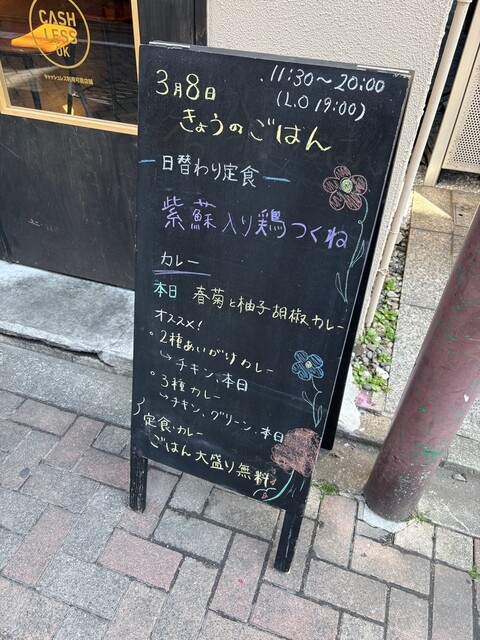 CASH
LESS
OK
キャッシュレス利用可能店舗
3月8日
11:30〜20:00
(L.O 19:00)
きょうのごはん
ー日替わり定食ー
紫蘇入り鶏つくね
カレー
本日 春菊と柚子胡椒カレー
オススメ!
・2種あいがけカレー
↳チキン、本日
・3種カレー
↳チキン、グリーン、本日
定食・カレー
ごはん大盛り無料